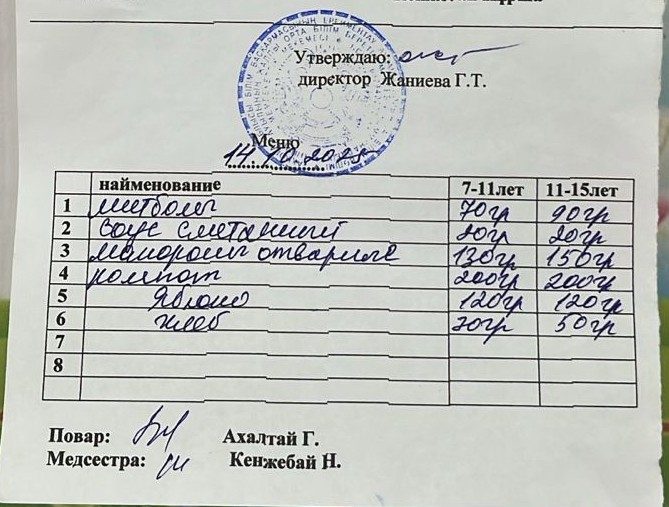 Утверждаю:
директор Жаниева Г.Т.
Меню
14.10.2025
найменование 7-11лет 11-15лет
1 митболы 70гр 90гр
2 соус сметанный 20гр 20гр
3 макароны отварные 130гр 150гр
4 компот 200гр 200гр
5 Яблоко 120гр 120гр
6 хлеб 30гр 50гр
7
8
Повар: Ахалтай Г.
Медсестра: Кенжебай Н.